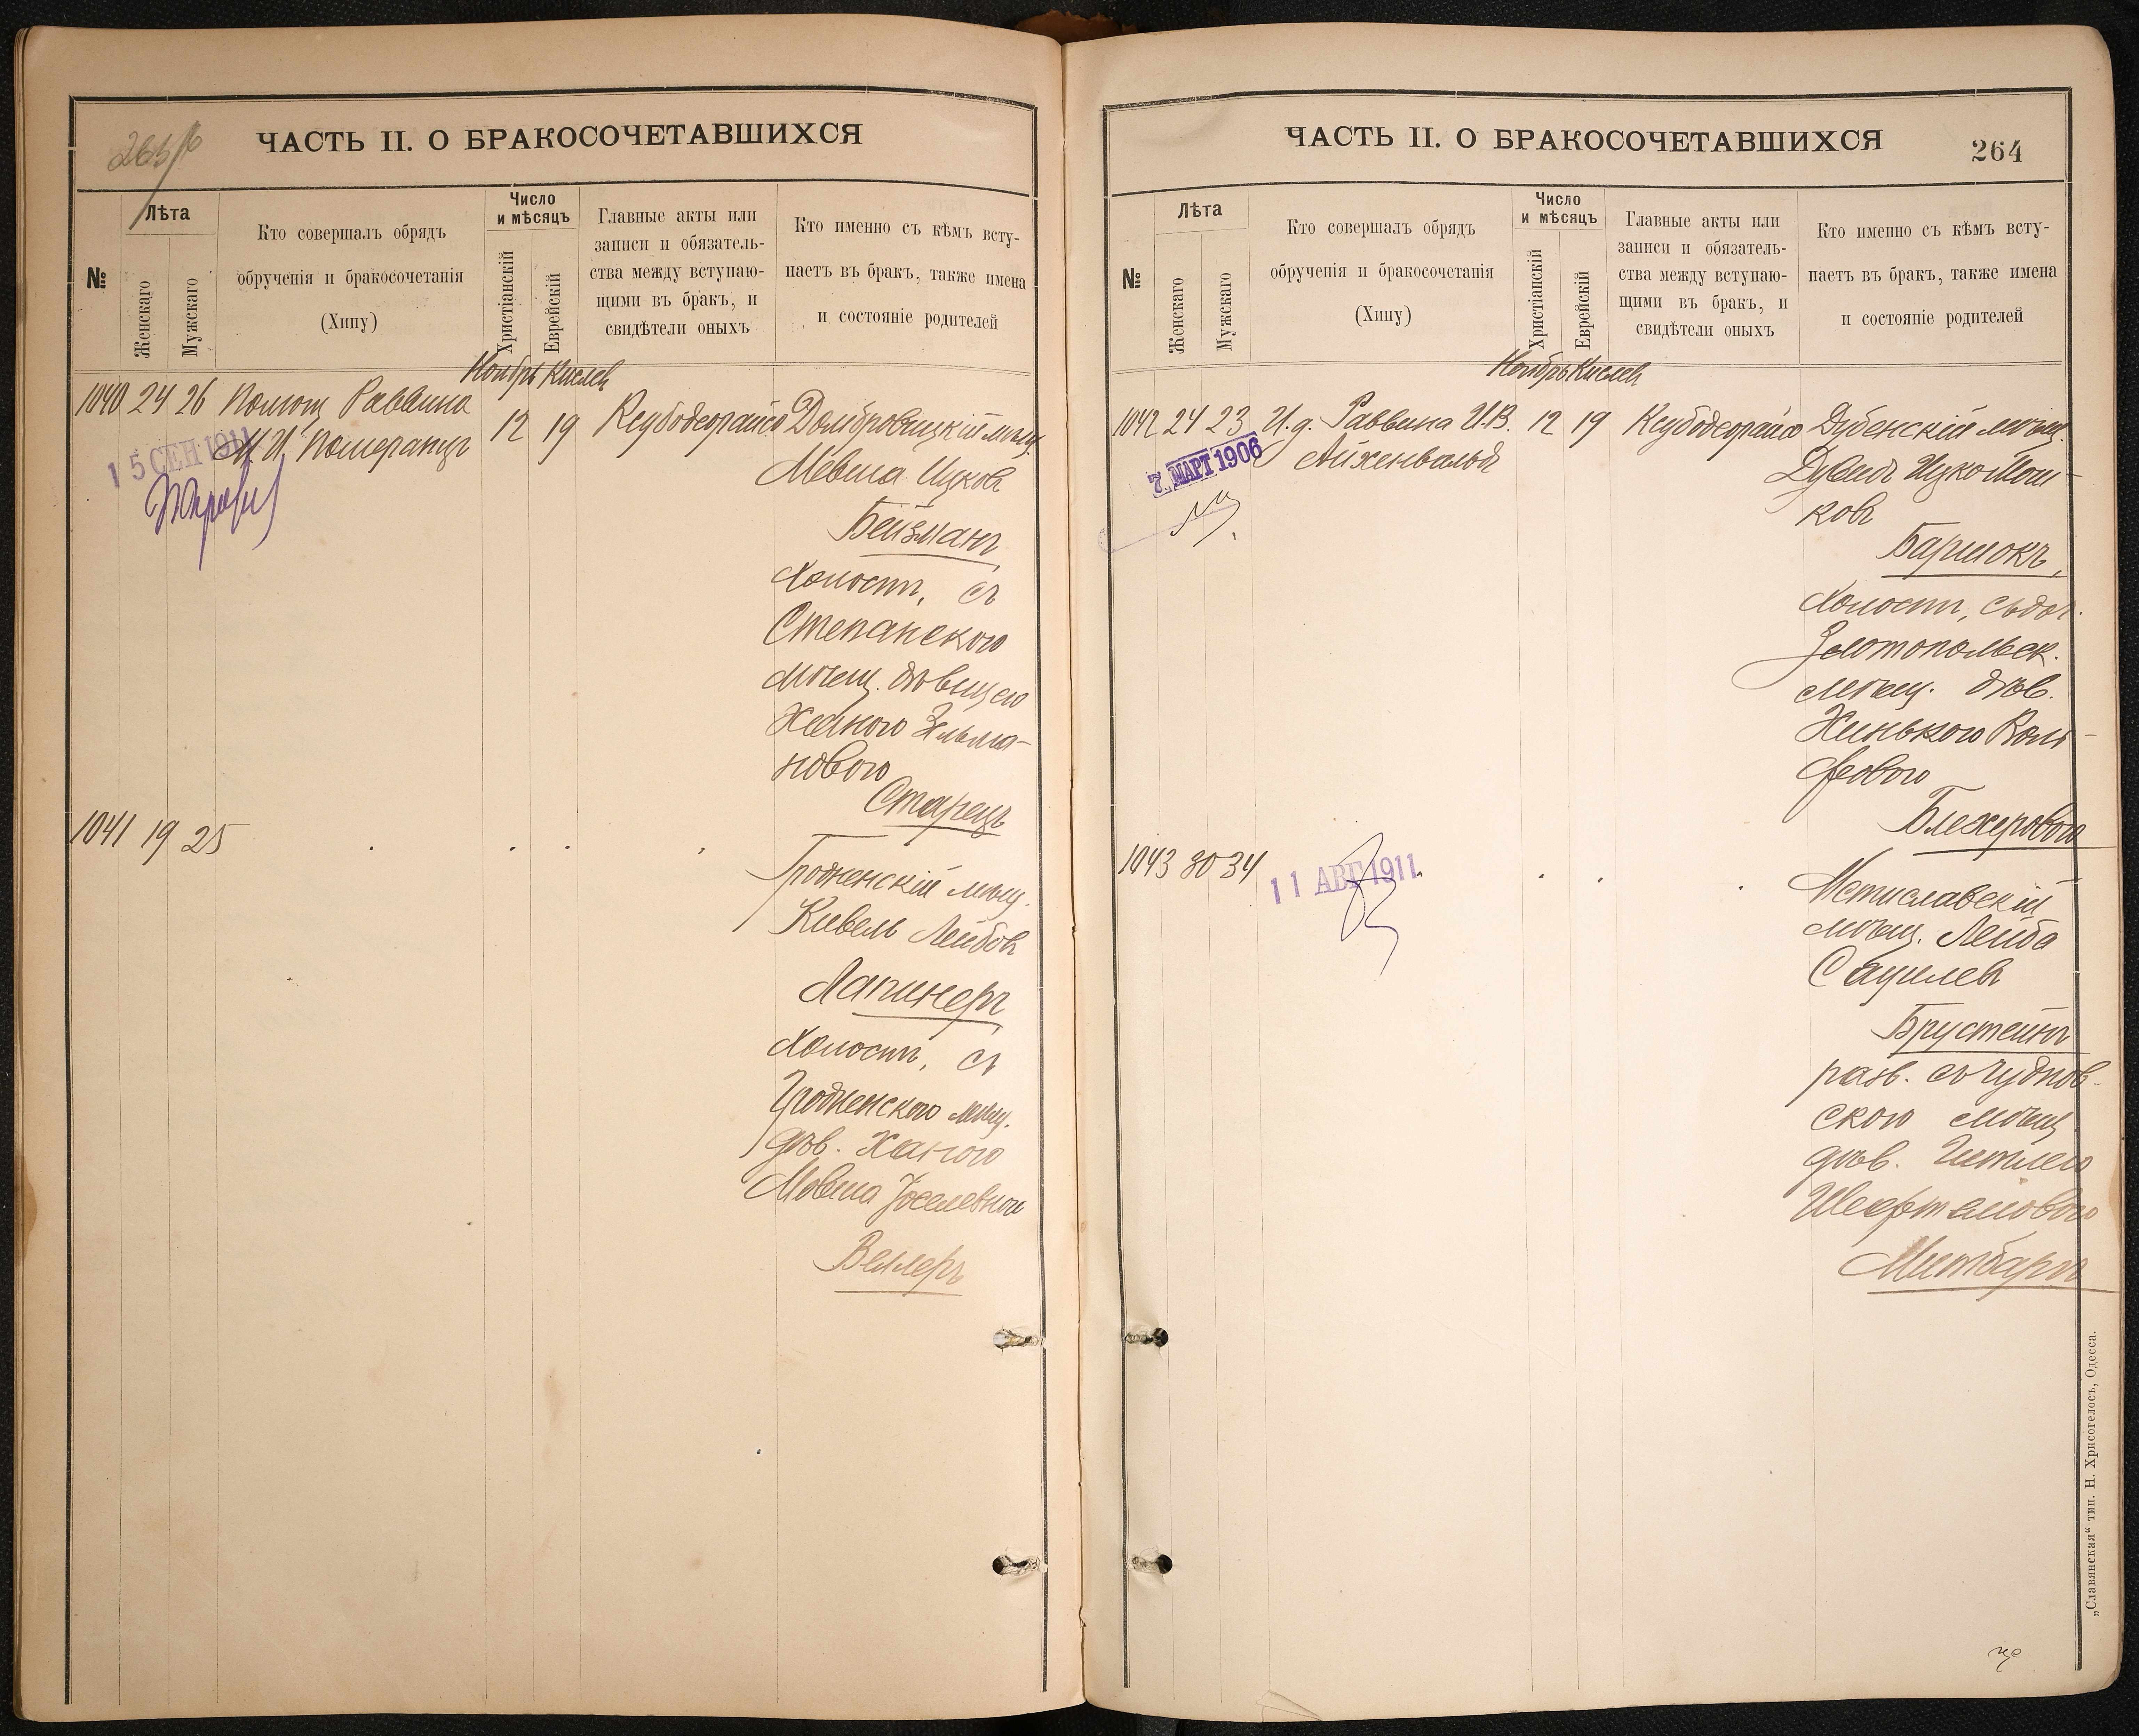 ЧАСТЬ II. О БРАКОСОЧЕТАВШИХСЯ
№
Лѣта
Женскаго
Мужскаго
Кто совершалъ обрядъ
обрученія и бракосочетанія
(Хипу)
Число
и мѣсяцъ
Христіанскій
Еврейскій
Главные акты или
записи и обязатель-
ства между вступаю-
щими въ бракъ, и
свидѣтели оныхъ
Кто именно съ кѣмъ всту-
паетъ въ бракъ, также имена
и состояніе родителей
Ноябрь Кислев
1040 24 26 Помощ Раввина
М. И. Померанцъ
12 19 Ксубодеорайсо
Домбровицкій мѣщ.
Мевша Ицков
Бейзман,
холост, съ
Степанского
мѣщ. дѣвицею
Хайкого Зельма-
нового
Старецъ
15 СЕН 1911
1041 19 25
Гродненскій мѣщ.
Кивель Лейбов
Лапинеръ,
холост, съ
Гродненского мѣщ.
дѣв. Ханого
Мовша Іоселевной
Веллеръ
ЧАСТЬ II. О БРАКОСОЧЕТАВШИХСЯ
264
№
Лѣта
Женскаго
Мужскаго
Кто совершалъ обрядъ
обрученія и бракосочетанія
(Хипу)
Число
и мѣсяцъ
Христіанскій
Еврейскій
Главные акты или
записи и обязатель-
ства между вступаю-
щими въ бракъ, и
свидѣтели оныхъ
Кто именно съ кѣмъ всту-
паетъ въ бракъ, также имена
и состояніе родителей
Ноябрь Кислев
1042 24 23 И.д. Раввина И.В.
Айхенвальд
12 19 Ксубодеорайсо
Дубенскій мѣщ.
Дувид Ицко Мош-
ков
Баршокъ,
холост, съ доч.
Золотопольск.
мѣщ. дѣв.
Хинького Воль-
фового
Блехерового
7. МАРТ 1906
1043 30 34
11 АВГ 1911
Мстиславскій
мѣщ. Лейба
Сауилев
Брустейнъ
разв. съ Чуднов-
ского мѣщ
дѣв. Гитлею
Шефтелового
Митбаръ
„Славянская“ тип. Н. Хрисогелосъ, Одесса.